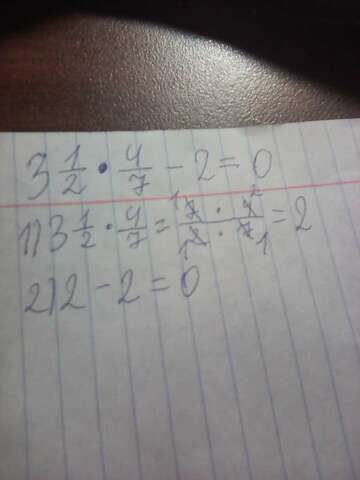 3 1/2 · 4/7 - 2 = 0
1) 3 1/2 · 4/7 = ¹7 · 4² / ₁2 · 7₁ = 2
2) 2 - 2 = 0